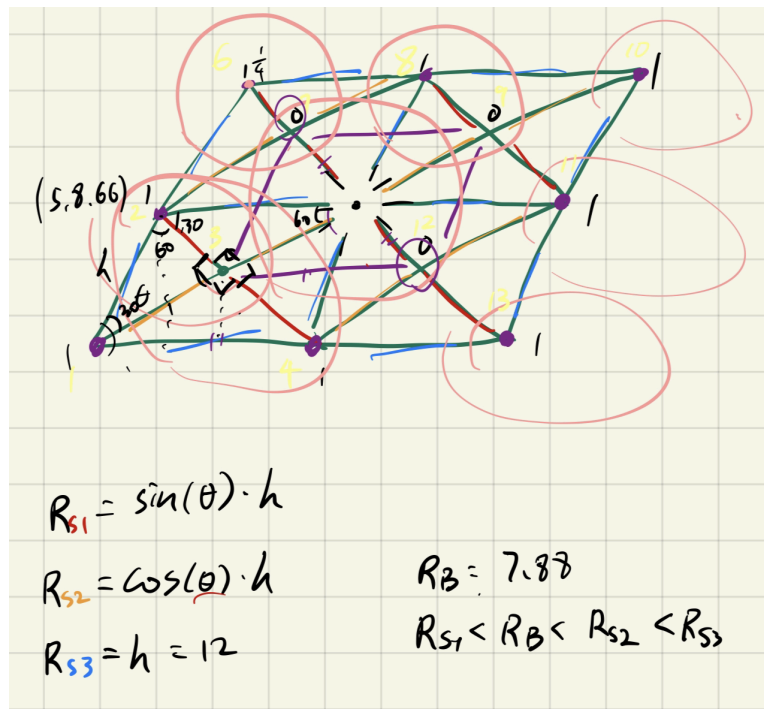 6
1 1/4
8
1
10
1
7
0
9
0
(5,8.66)
1
2
30
60
3
60
1
11
1
h
30
θ
12
0
1
13
1
1
1
4
1
R_S1 = sin(θ)·h
R_S2 = cos(θ)·h
R_S3 = h = 12
R_B = 7.88
R_S1 < R_B < R_S2 < R_S3